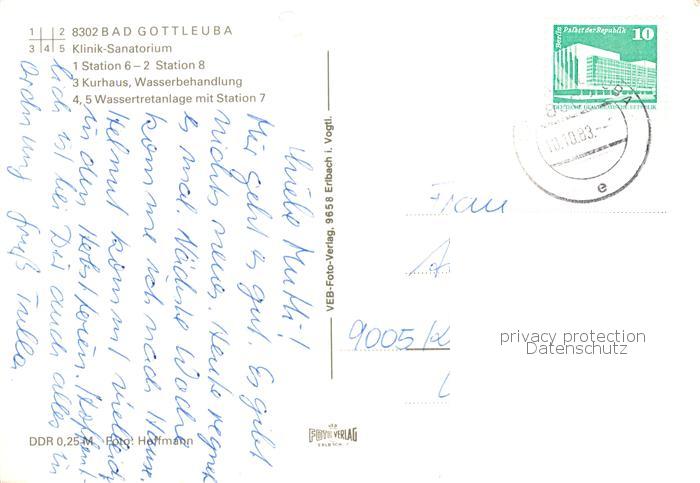 1 | 2 8302 BAD GOTTLEUBA
3 | 4 5 Klinik-Sanatorium
1 Station 6 – 2 Station 8
3 Kurhaus, Wasserbehandlung
4, 5 Wassertretanlage mit Station 7
Liebe Mutti!
Mir geht es gut. Es gibt
nichts neues. Heute regnet
es mal. Nächste Woche
komme ich nach Hause.
Helmut kommt vielleicht
in den Herbstferien. Hoffent-
lich ist bei Dir auch alles in
Ordnung. Gruß
DDR 0,25 M Foto: Hoffmann
VEB-Foto-Verlag, 9658 Erlbach i. Vogtl.
FOTO VERLAG
ERLBACH
Berlin Palast der Republik
10
DEUTSCHE DEMOKRATISCHE REPUBLIK
10.10.83
e
Frau
A
9005 K
privacy protection
Datenschutz